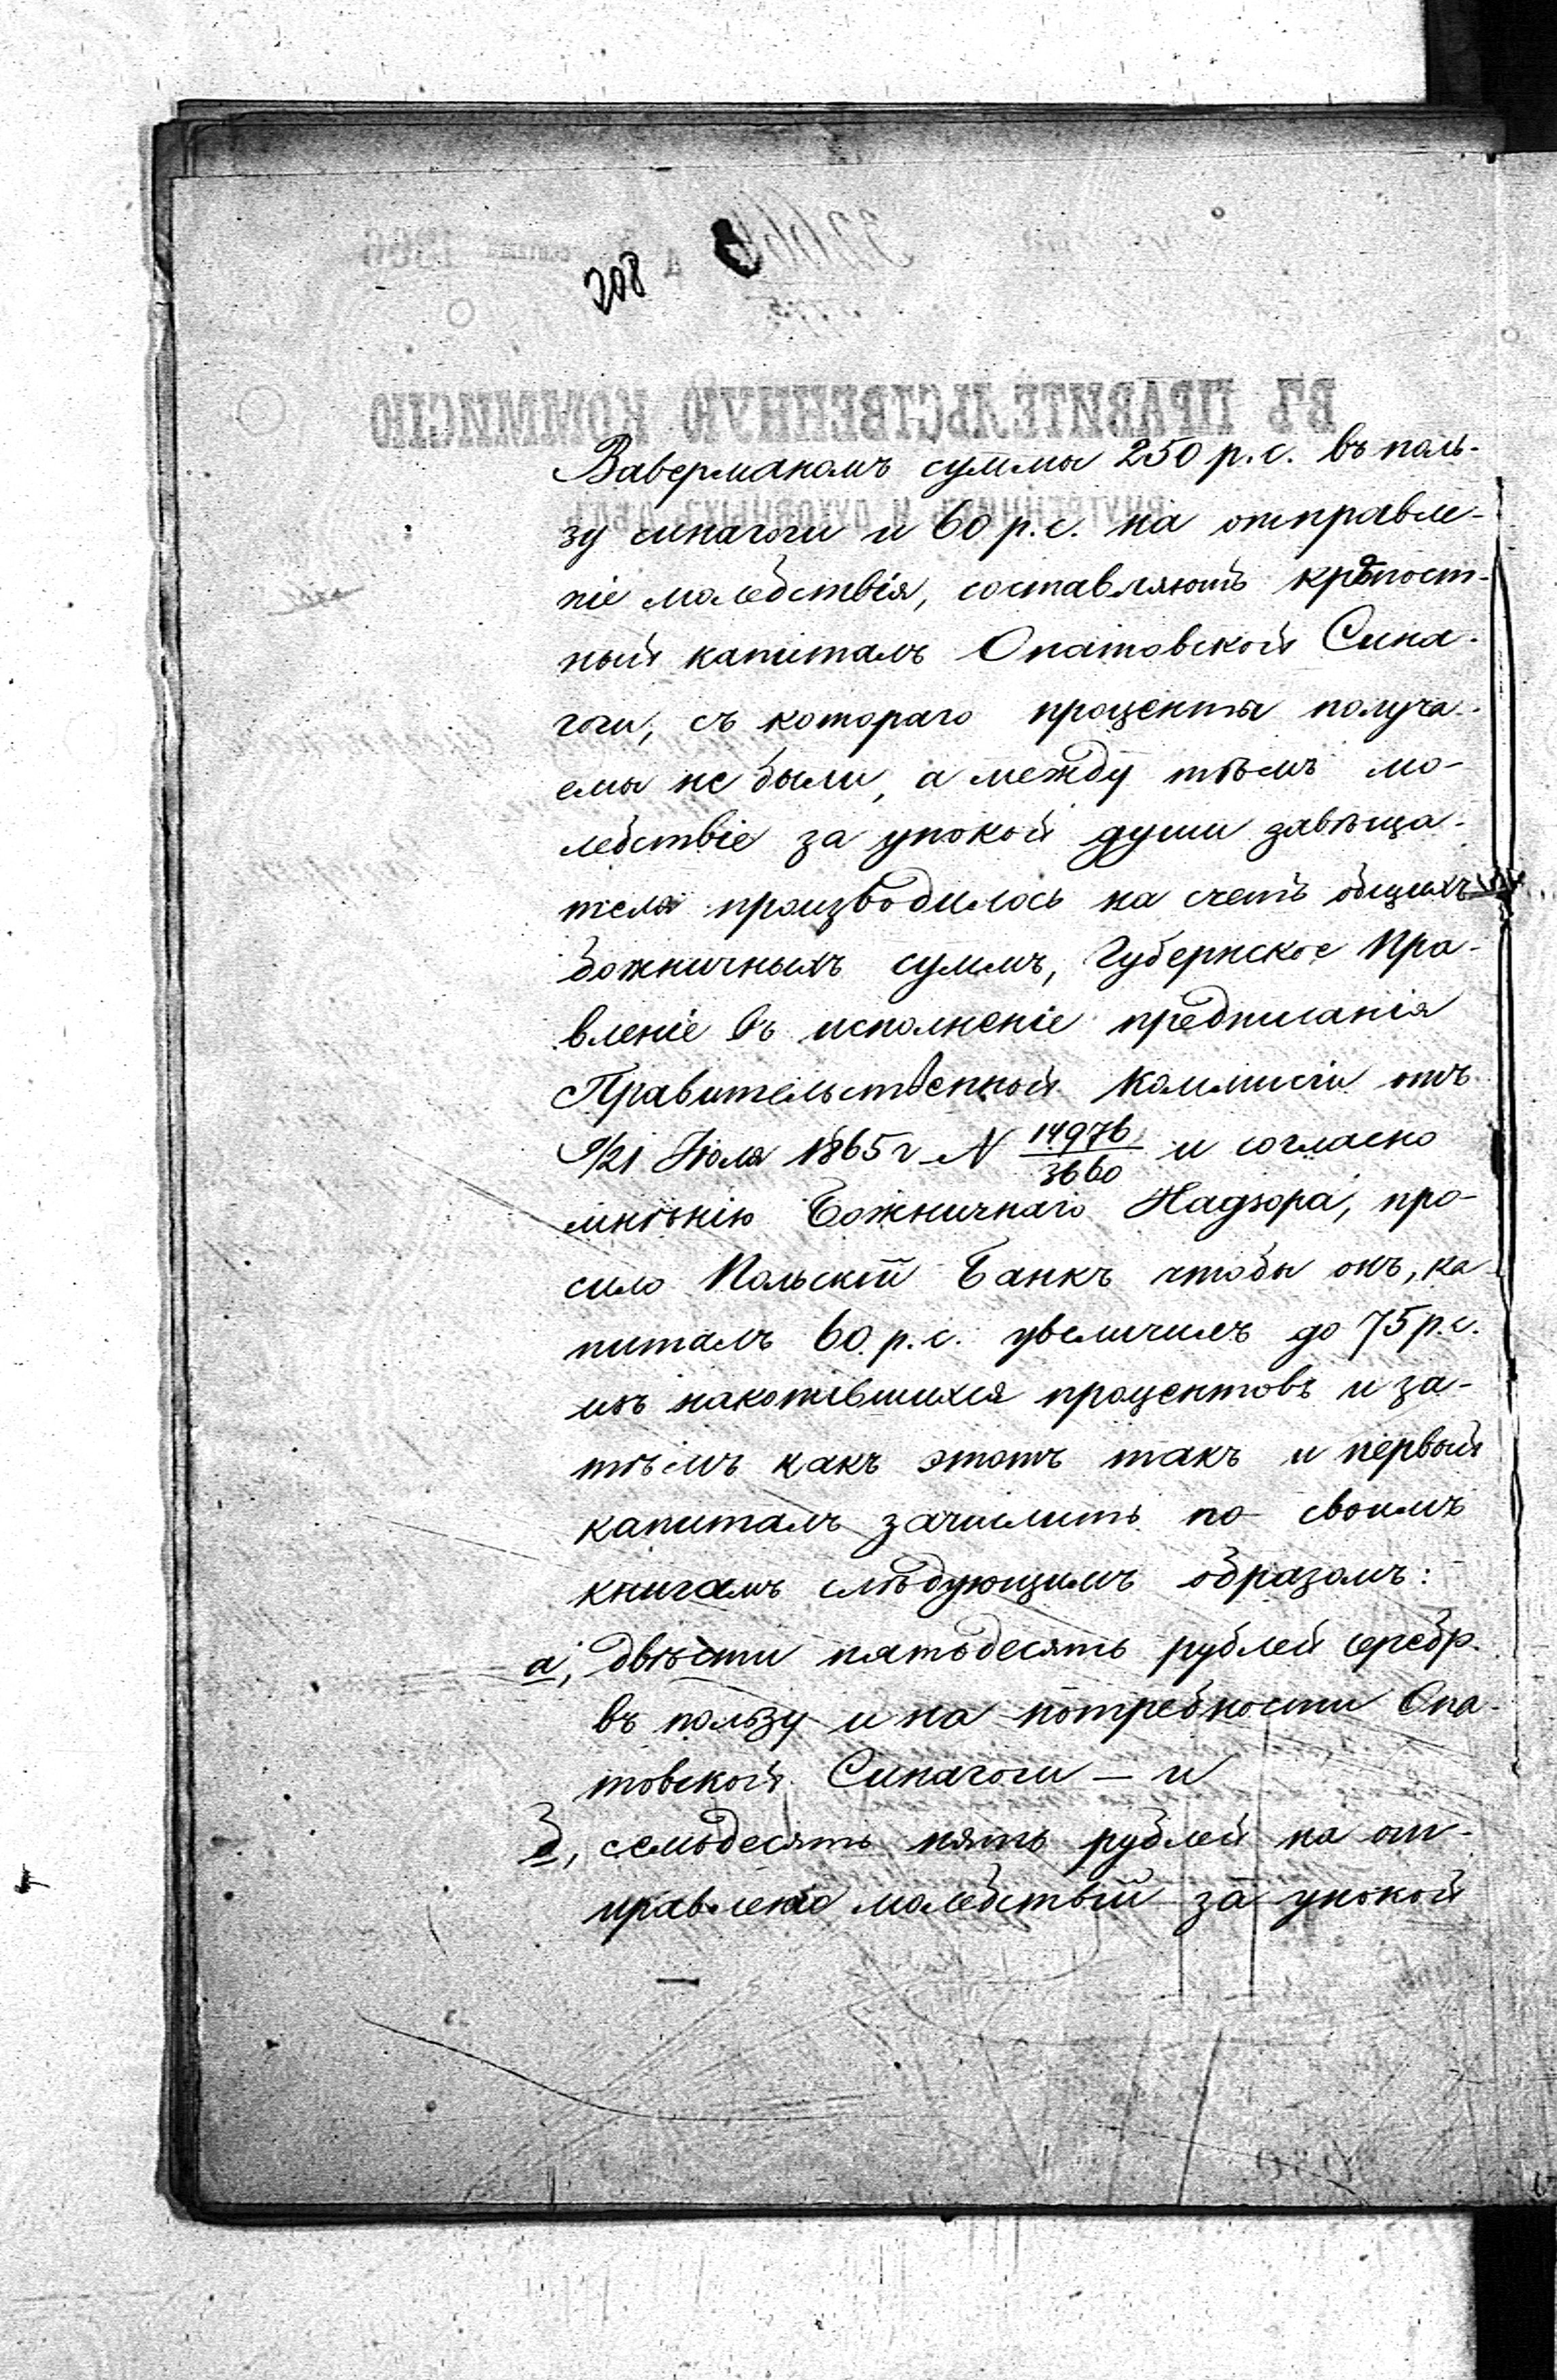 208
Ваверманомъ суммы 250 р. с. въ поль-
зу синагоги и 60 р. с. на отправле-
ніе молебствія, составляютъ крѣпост-
ный капиталъ Опатовской Сина-
гоги, съ котораго проценты получа-
емы не были, а между тѣмъ мо-
лебствіе за упокой души завѣща-
теля производилось на счетъ общихъ
божничныхъ суммъ, Губернское Пра-
вленіе въ исполненіе предписанія
Правительственной Коммисіи отъ
9/21 Іюля 1865 г № 14976/3660 и согласно
мнѣнію Божничнаго Надзора, про-
сило Польскій Банкъ чтобы онъ, ка-
питалъ 60 р. с. увеличилъ до 75 р. с.
изъ накопившихся процентовъ и за-
тѣмъ какъ этотъ такъ и первый
капиталъ зачислить по своимъ
книгамъ слѣдующимъ образомъ:
а, двѣсти пятьдесятъ рублей серебр.
въ пользу и на потребности Опа-
товской Синагоги — и
б, семьдесятъ пять рублей на от-
правленіе молебствій за упокой